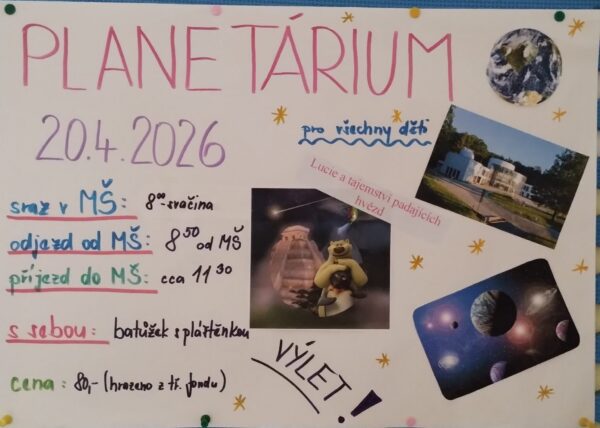 PLANETÁRIUM
20.4.2026
pro všechny děti
Lucie a tajemství padajících
hvězd
sraz v MŠ: 8⁰⁰-svačina
odjezd od MŠ: 8⁵⁰ od MŠ
příjezd do MŠ: cca 11³⁰
s sebou: batůžek s pláštěnkou
VÝLET!
cena: 80,- (hrazeno z tř. fondu)